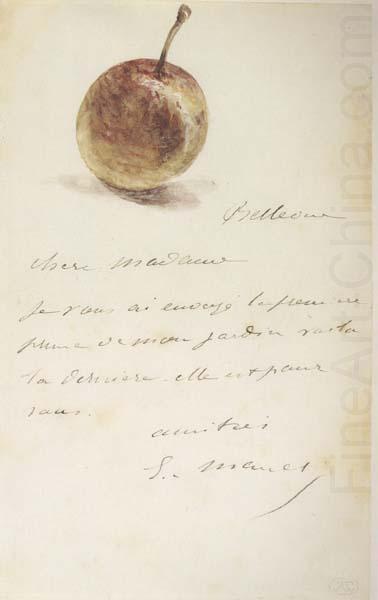 Bellevue
chere madame
je vous ai envoyé la premiere
prune de mon jardin voila
la derniere. elle est pour
vous.
amitiés
E. Manet
FineArtChina.com